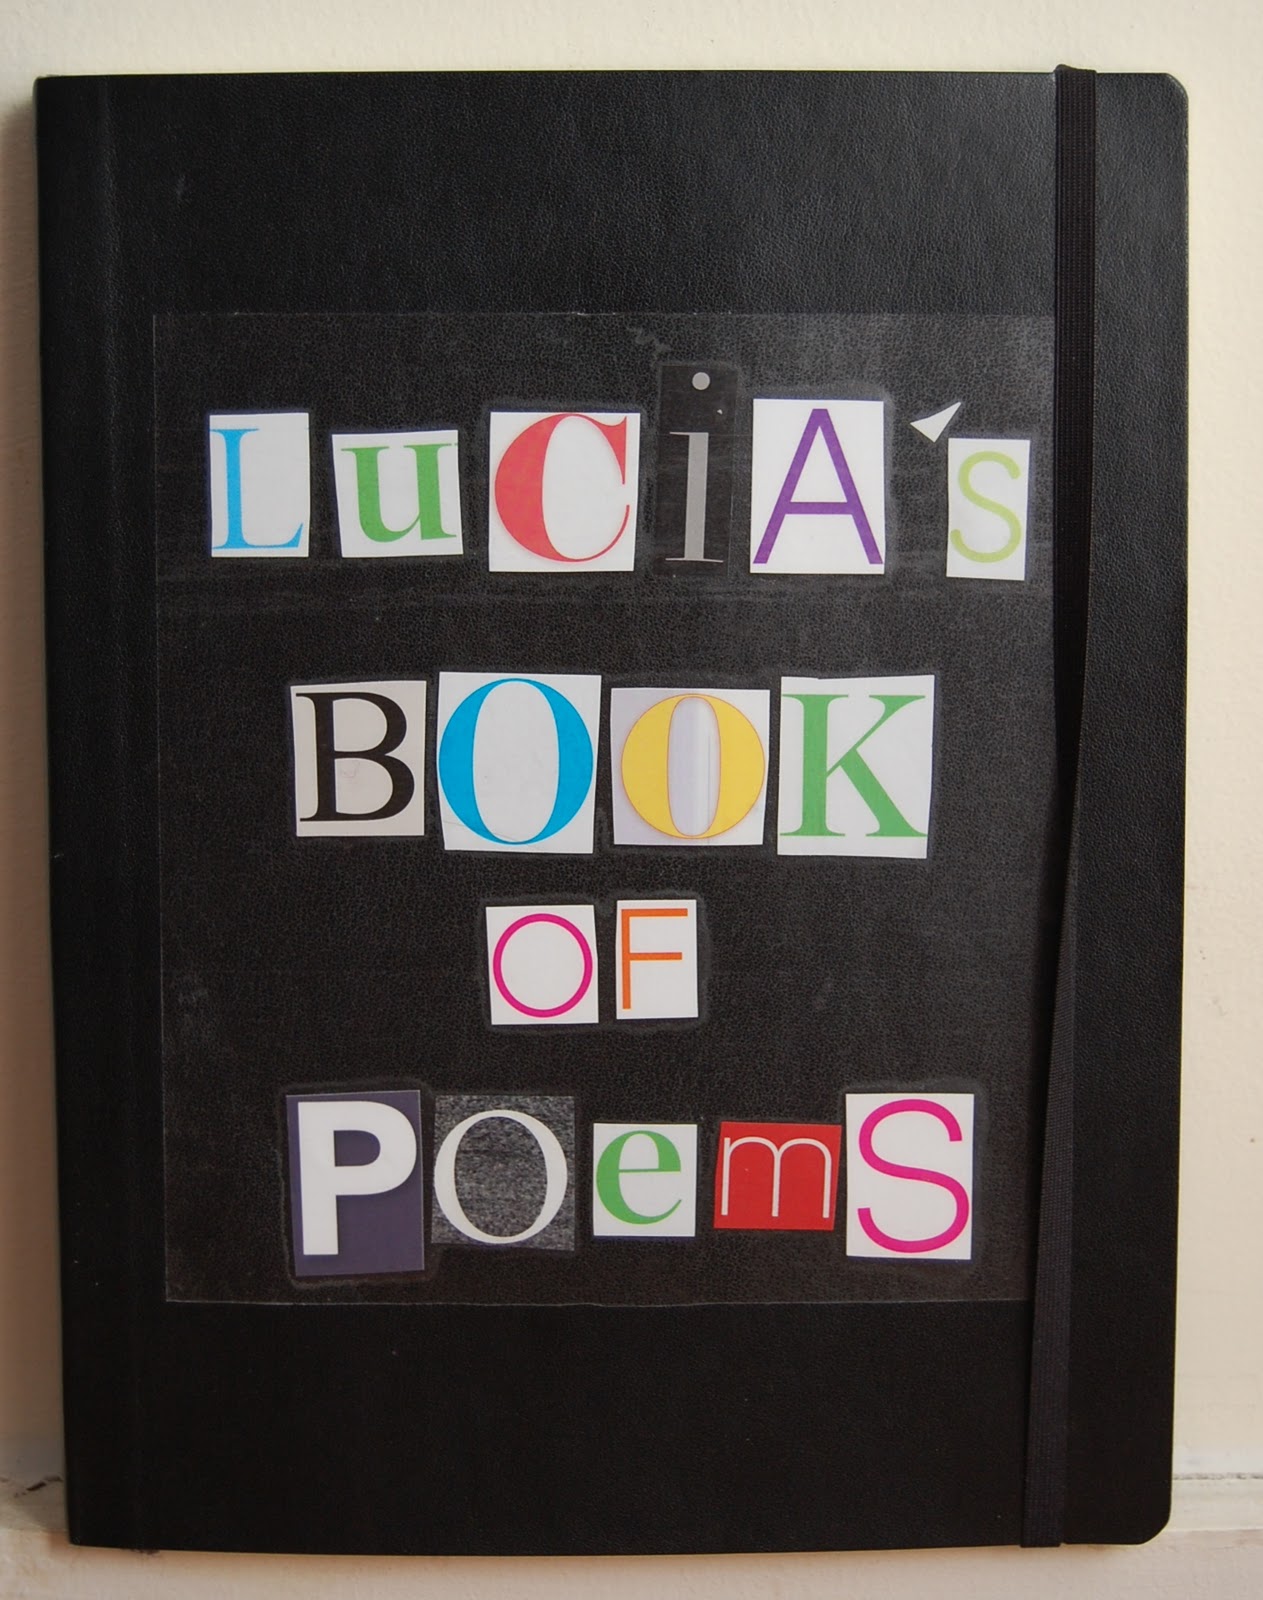 LuCiA's
BOOK
OF
POemS